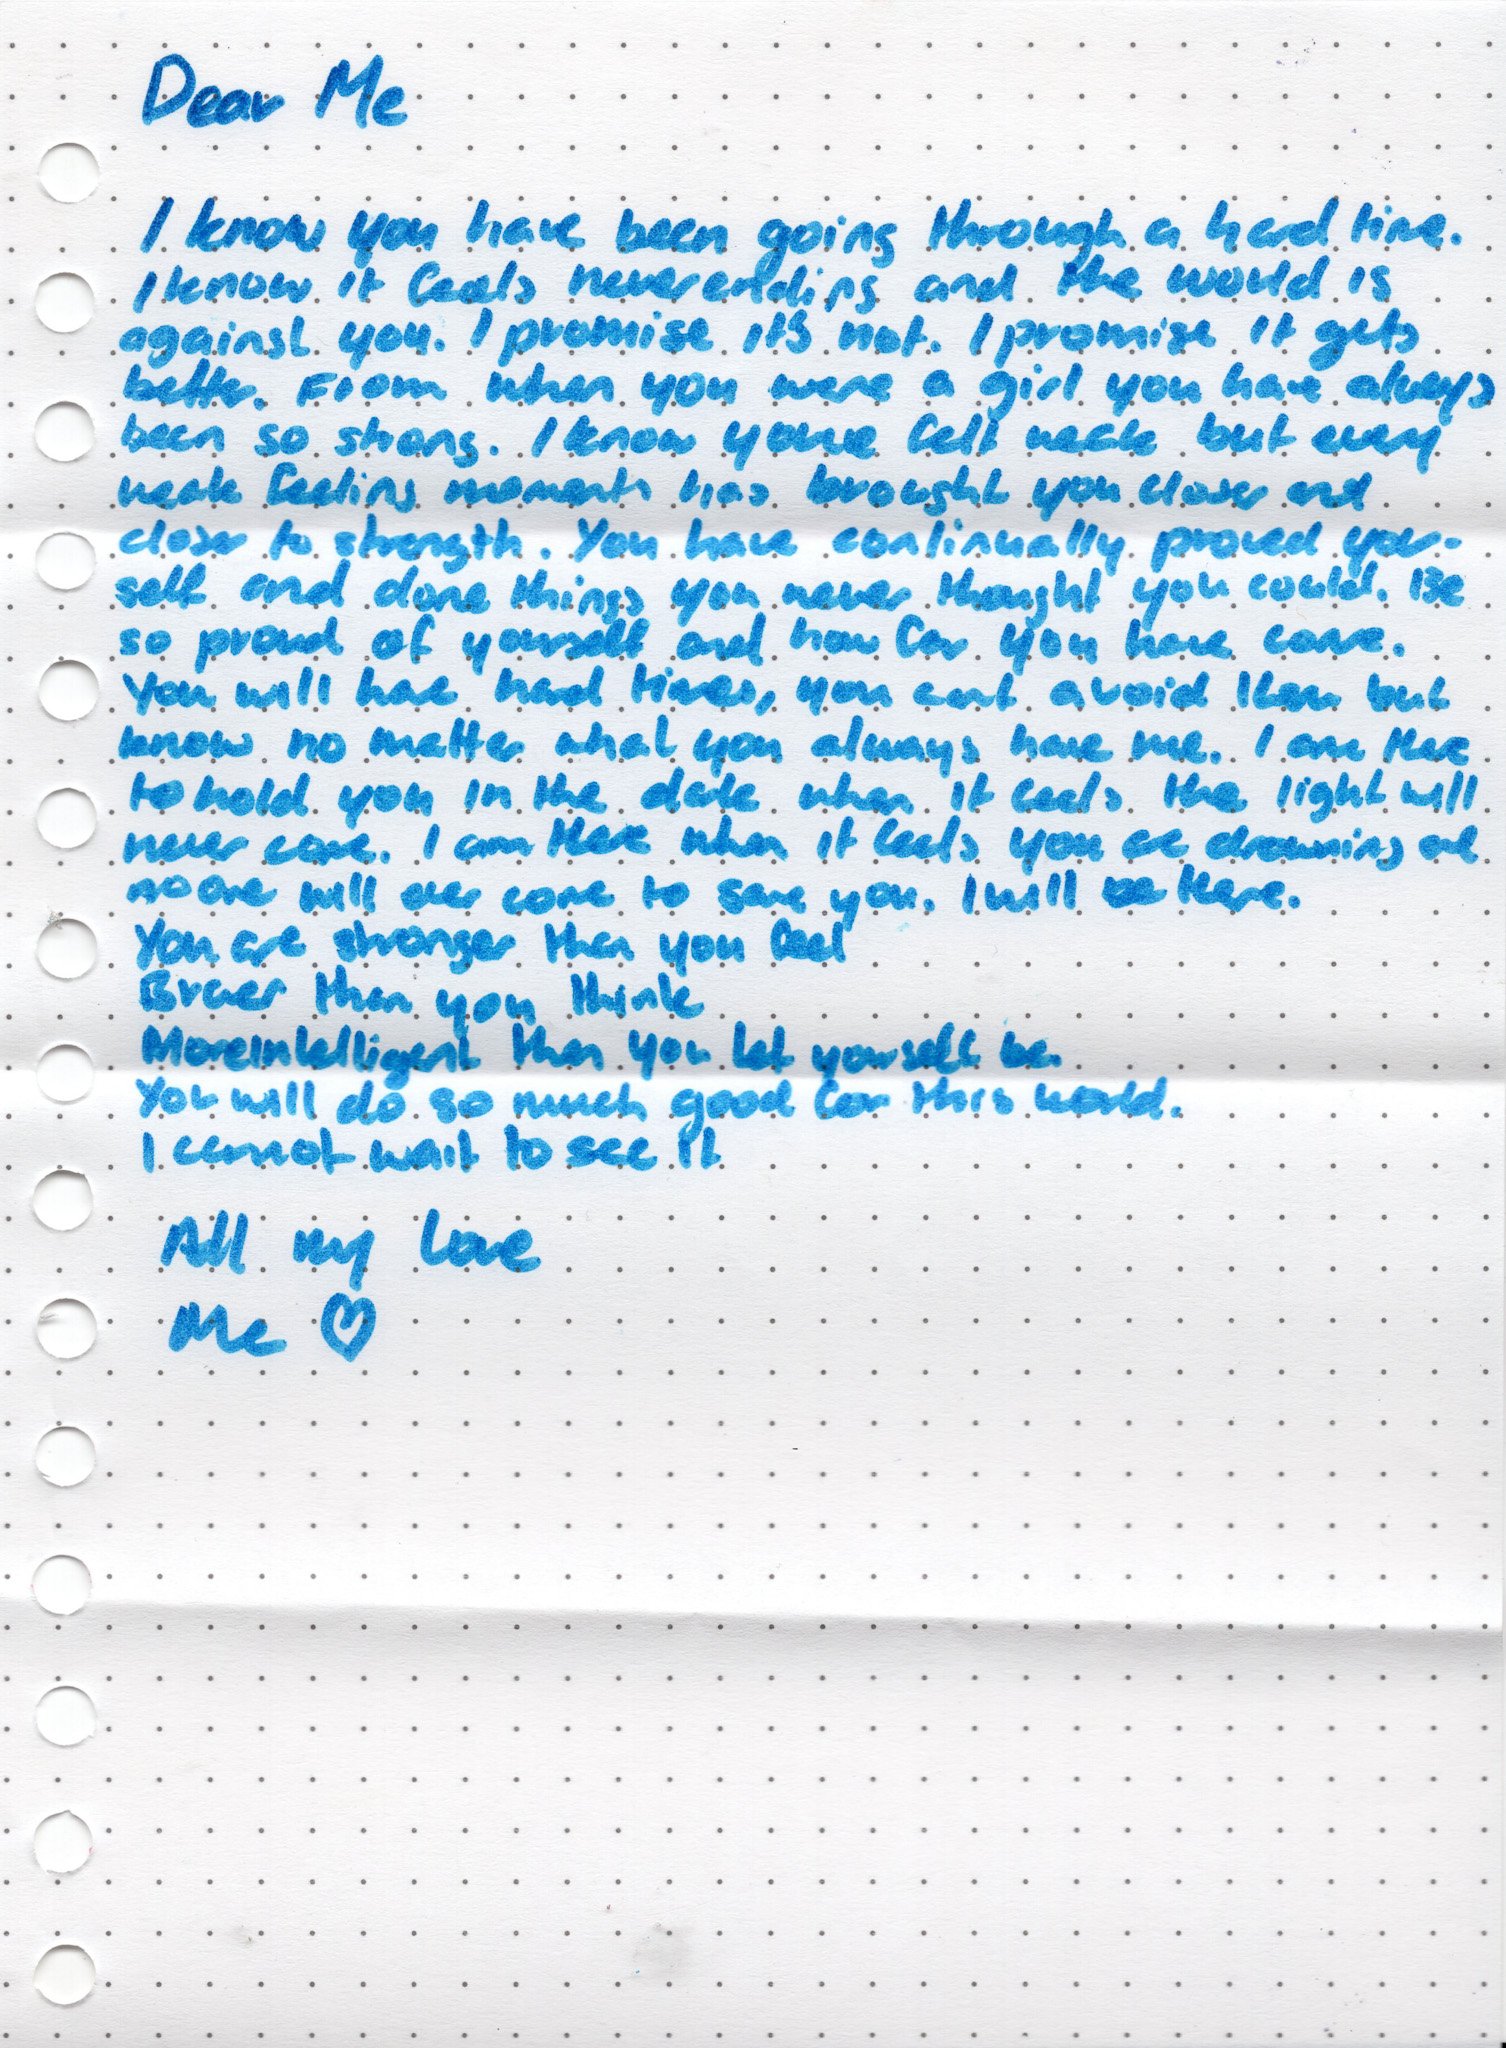 Dear Me
I know you have been going through a hard time.
I know it feels never ending and the world is
against you. I promise it's not. I promise it gets
better. From when you were a girl you have always
been so strong. I know youve felt weak but every
weak feeling moment has brought you closer and
closer to strength. You have continually proved your-
self and done things you never thought you could. Be
so proud of yourself and how far you have come.
You will have hard times, you cant avoid them but
know no matter what you always have me. I am here
to hold you in the dark when it feels the light will
never come. I am here when it feels you are drowning and
no one will ever come to save you. I will be here.
You are stronger than you feel
Braver than you think
More intelligent than you let yourself be.
You will do so much good for this world.
I cannot wait to see it
All my love
Me ♡